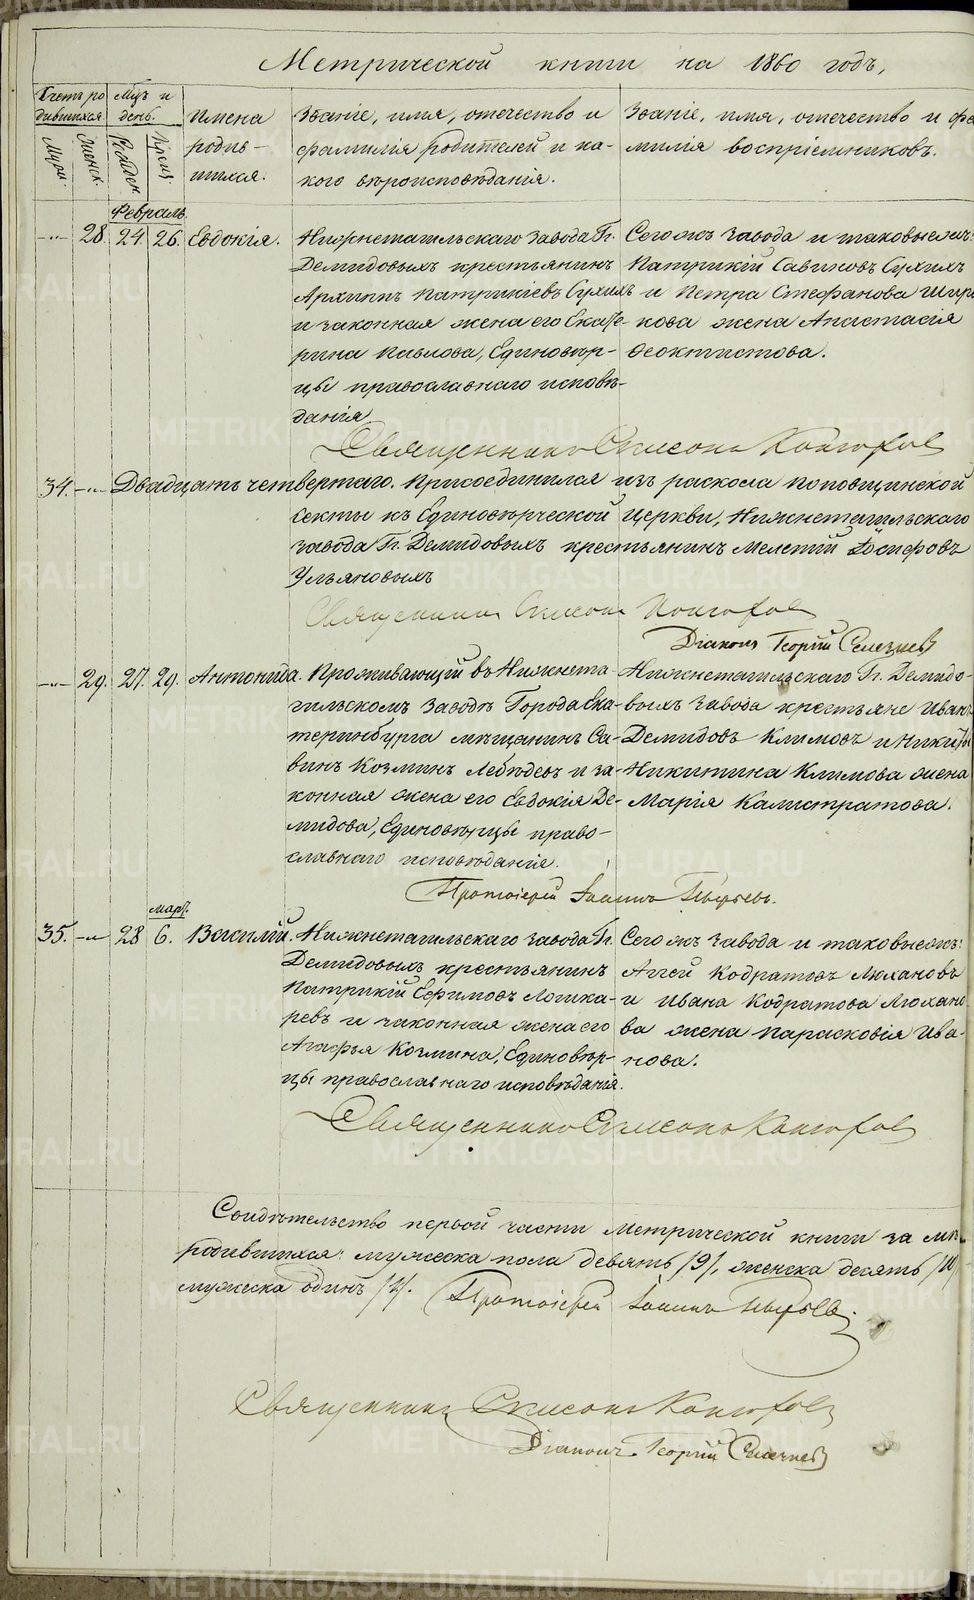 Метрической книги на 1860 годъ,
Счетъ ро
дившихся
Мцъ и
день.
имена
родив-
шихся.
Званіе, имя, отечество и
фамилія родителей и ка-
кого вѣроисповѣданія.
Званіе, имя, отечество и фа
милія воспріемниковъ.
Муж.
Женск.
Рожден.
Крещ.
Февраль.
28 24 26. Евдокія.
Нижнетагильскаго завода Гг.
Демидовыхъ крестьянинъ
Архипъ Патрикіевъ Сухихъ
и законная жена его Екате-
рина Павлова, Единовѣр-
цы православнаго исповѣ-
данія
Сегожъ завода и таковыежъ:
Патрикій Савиновъ Сухихъ
и Петра Стефанова Шир
кова жена Анастасія
Феоктистова.
Священникъ Симеонъ
34. Двадцать четвертаго. Присоединился изъ раскола поповщинской
секты къ Единовѣрческой Церкви, Нижнетагильскаго
завода Гг. Демидовыхъ крестьянинъ Мелетій Іосифовъ
Ульяновыхъ
Священникъ Симеонъ
Діаконъ Георгій Селезневъ
29. 27. 29. Антонида.
Проживающій въ Нижнета-
гильскомъ Заводѣ Города Ека-
теринбурга мѣщанинъ Са-
винъ Козминъ Лебедевъ и за-
конная жена его Евдокія Де-
мидова, Единовѣрцы право-
славнаго исповѣданія.
Нижнетагильскаго Гг. Демидо-
выхъ Завода крестьяне Иванъ
Демидовъ Климовъ и Никиты
Никитина Климова жена
Марія Калистратова.
Протоіерей Іоаннъ Пырьевъ.
Март.
35. 28 6. Василій.
Нижнетагильскаго завода Гг.
Демидовыхъ крестьянинъ
Патрикій Ефимовъ Логика-
ревъ и законная жена его
Агафья Козмина, Единовѣр-
цы православнаго исповѣданія.
Сегожъ завода и таковыежъ:
Аггей Кодратовъ Люхановъ
и Ивана Кодратова Люхано
ва жена Парасковія Ива-
нова.
Священникъ Симеонъ
Свидѣтельство первой части Метрической книги за
родившихся: мужеска пола девять /9/, женска десять /10/
мужеска одинъ /1/. Протоіерей Іоаннъ Пырьевъ.
Священникъ Симеонъ
Діаконъ Георгій Селезневъ
METRIKI.GASO-URAL.RU